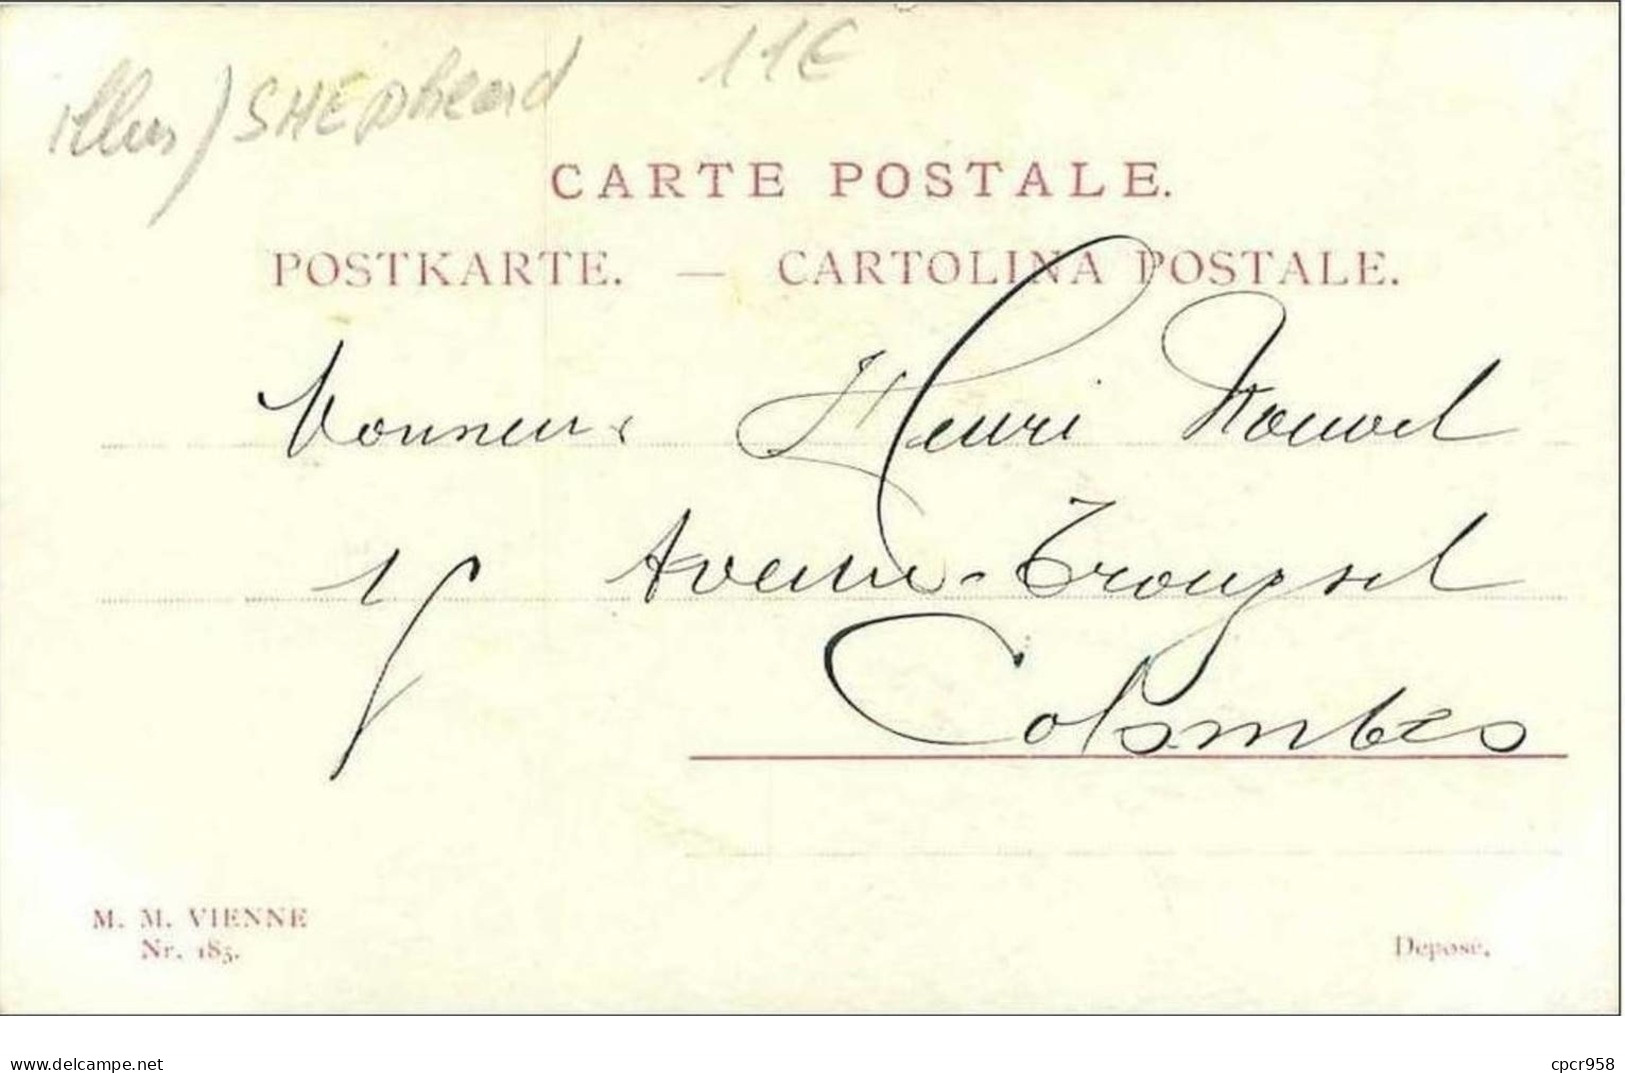 illus) SHEPheard 11€
CARTE POSTALE.
POSTKARTE. — CARTOLINA POSTALE.
Monsieur Henri Nouvel
15 Avenue
Colombes
M. M. VIENNE
Nr. 185.
Deposé.
delcampe.net
cpcr958